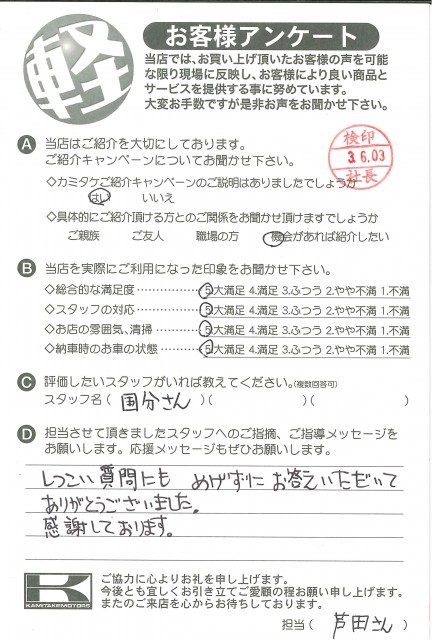 軽
お客様アンケート
当店では、お買い上げ頂いたお客様の声を可能
な限り現場に反映し、お客様により良い商品と
サービスを提供する事に努めています。
大変お手数ですが是非お声をお聞かせ下さい。
A 当店はご紹介を大切にしております。
ご紹介キャンペーンについてお聞かせ下さい。
検印
3.6.03
社長
◇カミタケご紹介キャンペーンのご説明はありましたでしょうか
はい いいえ
◇具体的にご紹介頂ける方とのご関係をお聞かせ頂けますでしょうか
ご親族 ご友人 職場の方 機会があれば紹介したい
B 当店を実際にご利用になった印象をお聞かせ下さい。
◇総合的な満足度……………5.大満足 4.満足 3.ふつう 2.やや不満 1.不満
◇スタッフの対応……………5.大満足 4.満足 3.ふつう 2.やや不満 1.不満
◇お店の雰囲気、清掃………5.大満足 4.満足 3.ふつう 2.やや不満 1.不満
◇納車時のお車の状態………5.大満足 4.満足 3.ふつう 2.やや不満 1.不満
C 評価したいスタッフがいれば教えてください。(複数回答可)
スタッフ名( 国分さん )( )( )
D 担当させて頂きましたスタッフへのご指摘、ご指導メッセージを
お願いします。応援メッセージもぜひお願いします。
しつこい質問にも めげずに お答えいただいて
ありがとうございました。
感謝しております。
K
KAMITAKEMOTORS
ご協力に心よりお礼を申し上げます。
今後とも宜しくお引き立てご愛顧の程お願い申し上げます。
またのご来店を心からお待ちしております。
担当( 芦田さん )